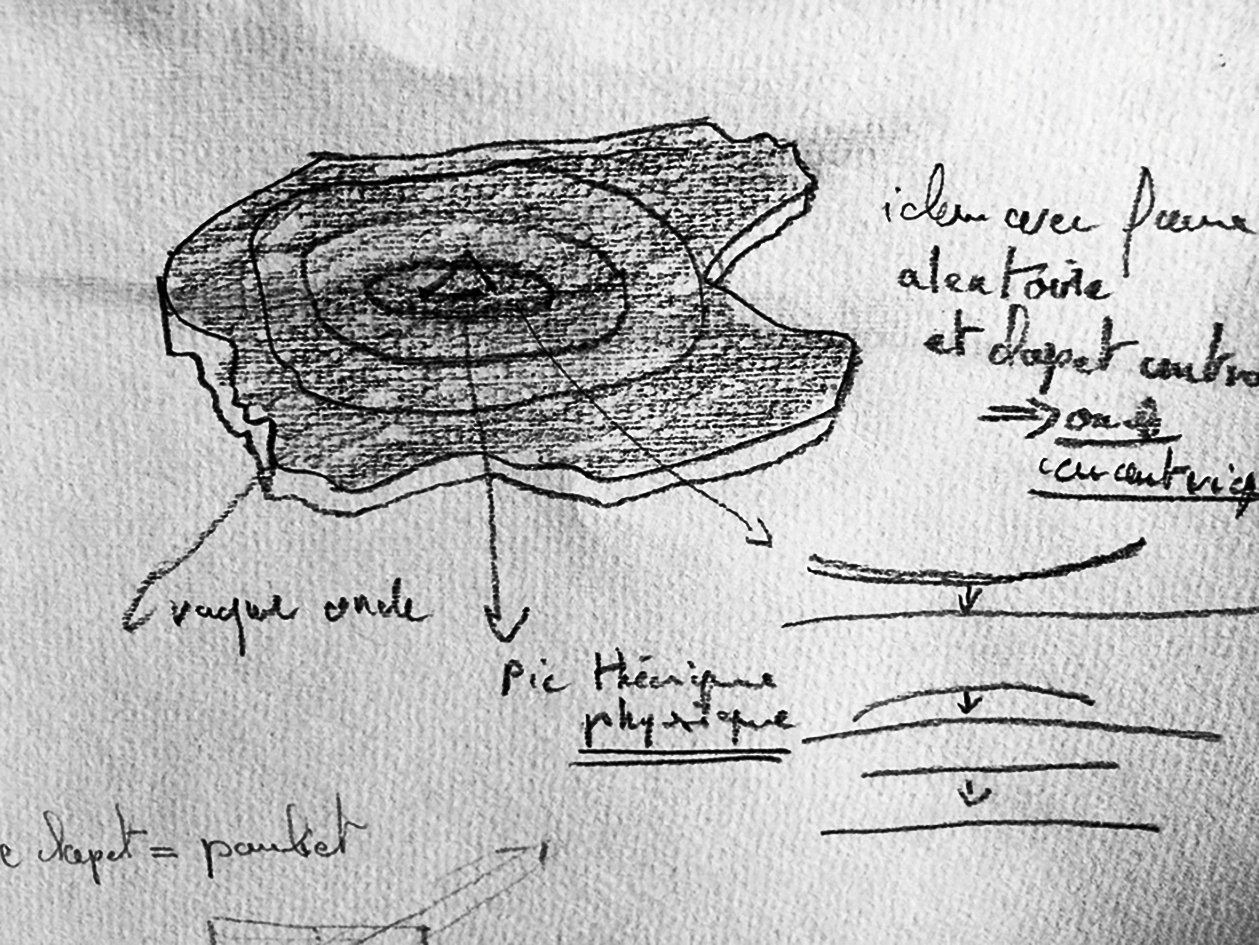 idem avec forme
aleatoire
et clapet centra
⇒ onde
concentriq
vague onde
Pic théorique
physique
clapet =